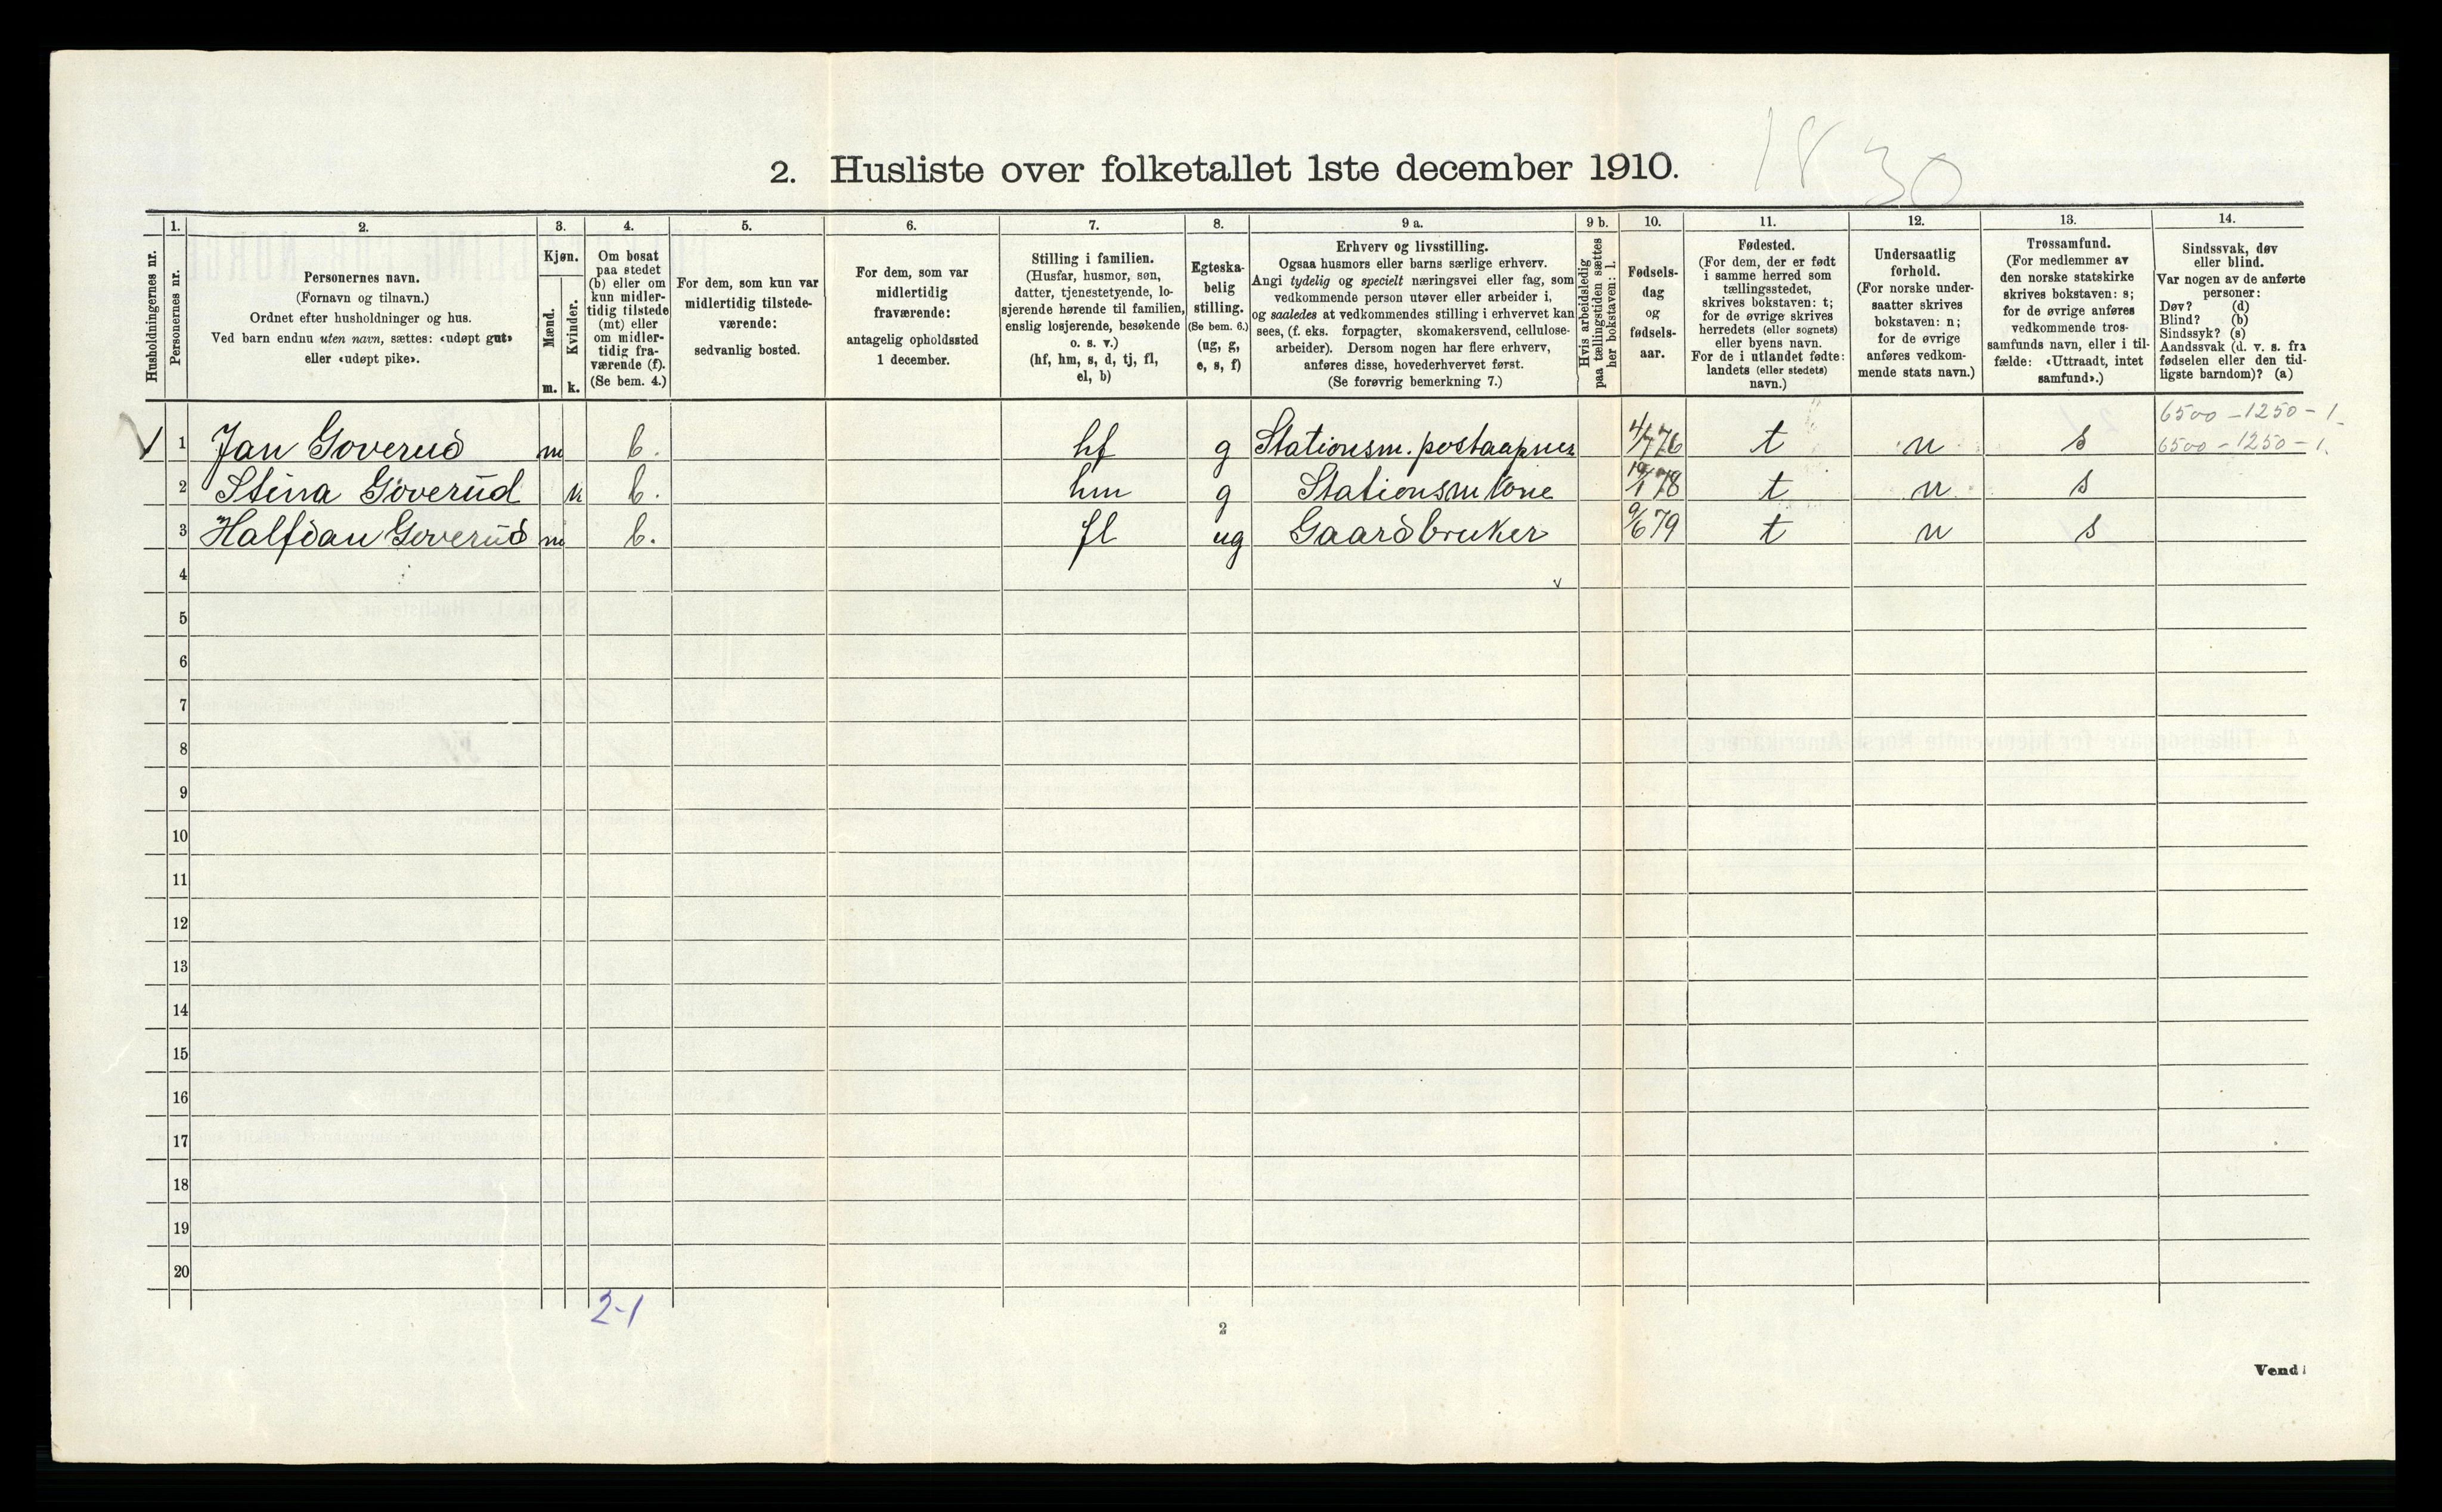 18 30
2. Husliste over folketallet 1ste december 1910.
1. 2. 3. 4. 5. 6. 7. 8. 9 a. 9 b. 10. 11. 12. 13. 14.
Husholdningernes nr.
Personernes nr.
Personernes navn.
(Fornavn og tilnavn.)
Ordnet efter husholdninger og hus.
Ved barn endnu uten navn, sættes: «udøpt gut»
eller «udøpt pike».
Kjøn.
Mænd.
m.
Kvinder.
k.
Om bosat
paa stedet
(b) eller om
kun midler-
tidig tilstede
(mt) eller
om midler-
tidig fra-
værende (f).
(Se bem. 4.)
For dem, som kun var
midlertidig tilstede-
værende:
sedvanlig bosted.
For dem, som var
midlertidig
fraværende:
antagelig opholdssted
1 december.
Stilling i familien.
(Husfar, husmor, søn,
datter, tjenestetyende, lo-
sjerende hørende til familien,
enslig losjerende, besøkende
o. s. v.)
(hf, hm, s, d, tj, fl,
el, b)
Egteska-
belig
stilling.
(Se bem. 6.)
(ug, g,
e, s, f)
Erhverv og livsstilling.
Ogsaa husmors eller barns særlige erhverv.
Angi tydelig og specielt næringsvei eller fag, som
vedkommende person utøver eller arbeider i,
og saaledes at vedkommendes stilling i erhvervet kan
sees, (f. eks. forpagter, skomakersvend, cellulose-
arbeider). Dersom nogen har flere erhverv,
anføres disse, hovederhvervet først.
(Se forøvrig bemerkning 7.)
Hvis arbeidsledig
paa tællingstiden sættes
her bokstaven: l.
Fødsels-
dag
og
fødsels-
aar.
Fødested.
(For dem, der er født
i samme herred som
tællingsstedet,
skrives bokstaven: t;
for de øvrige skrives
herredets (eller sognets)
eller byens navn.
For de i utlandet fødte:
landets (eller stedets)
navn.)
Undersaatlig
forhold.
(For norske under-
saatter skrives
bokstaven: n;
for de øvrige
anføres vedkom-
mende stats navn.)
Trossamfund.
(For medlemmer av
den norske statskirke
skrives bokstaven: s;
for de øvrige anføres
vedkommende tros-
samfunds navn, eller i til-
fælde: «Uttraadt, intet
samfund».)
Sindssvak, døv
eller blind.
Var nogen av de anførte
personer:
Døv? (d)
Blind? (b)
Sindssyk? (s)
Aandssvak (d. v. s. fra
fødselen eller den tid-
ligste barndom)? (a)
6500 - 1250 - 1.
1 Jan Goverud m b. hf g Stationsm. postaapner 4/7 76 t n s 6500 - 1250 - 1.
2 Stina Goverud k b. hm g Stationsm kone 19/1 78 t n s
3 Halfdan Goverud m b. fl ug Gaardbruker 9/6 79 t n s
4
5
6
7
8
9
10
11
12
13
14
15
16
17
18
19
20
2-1
2
Vend!